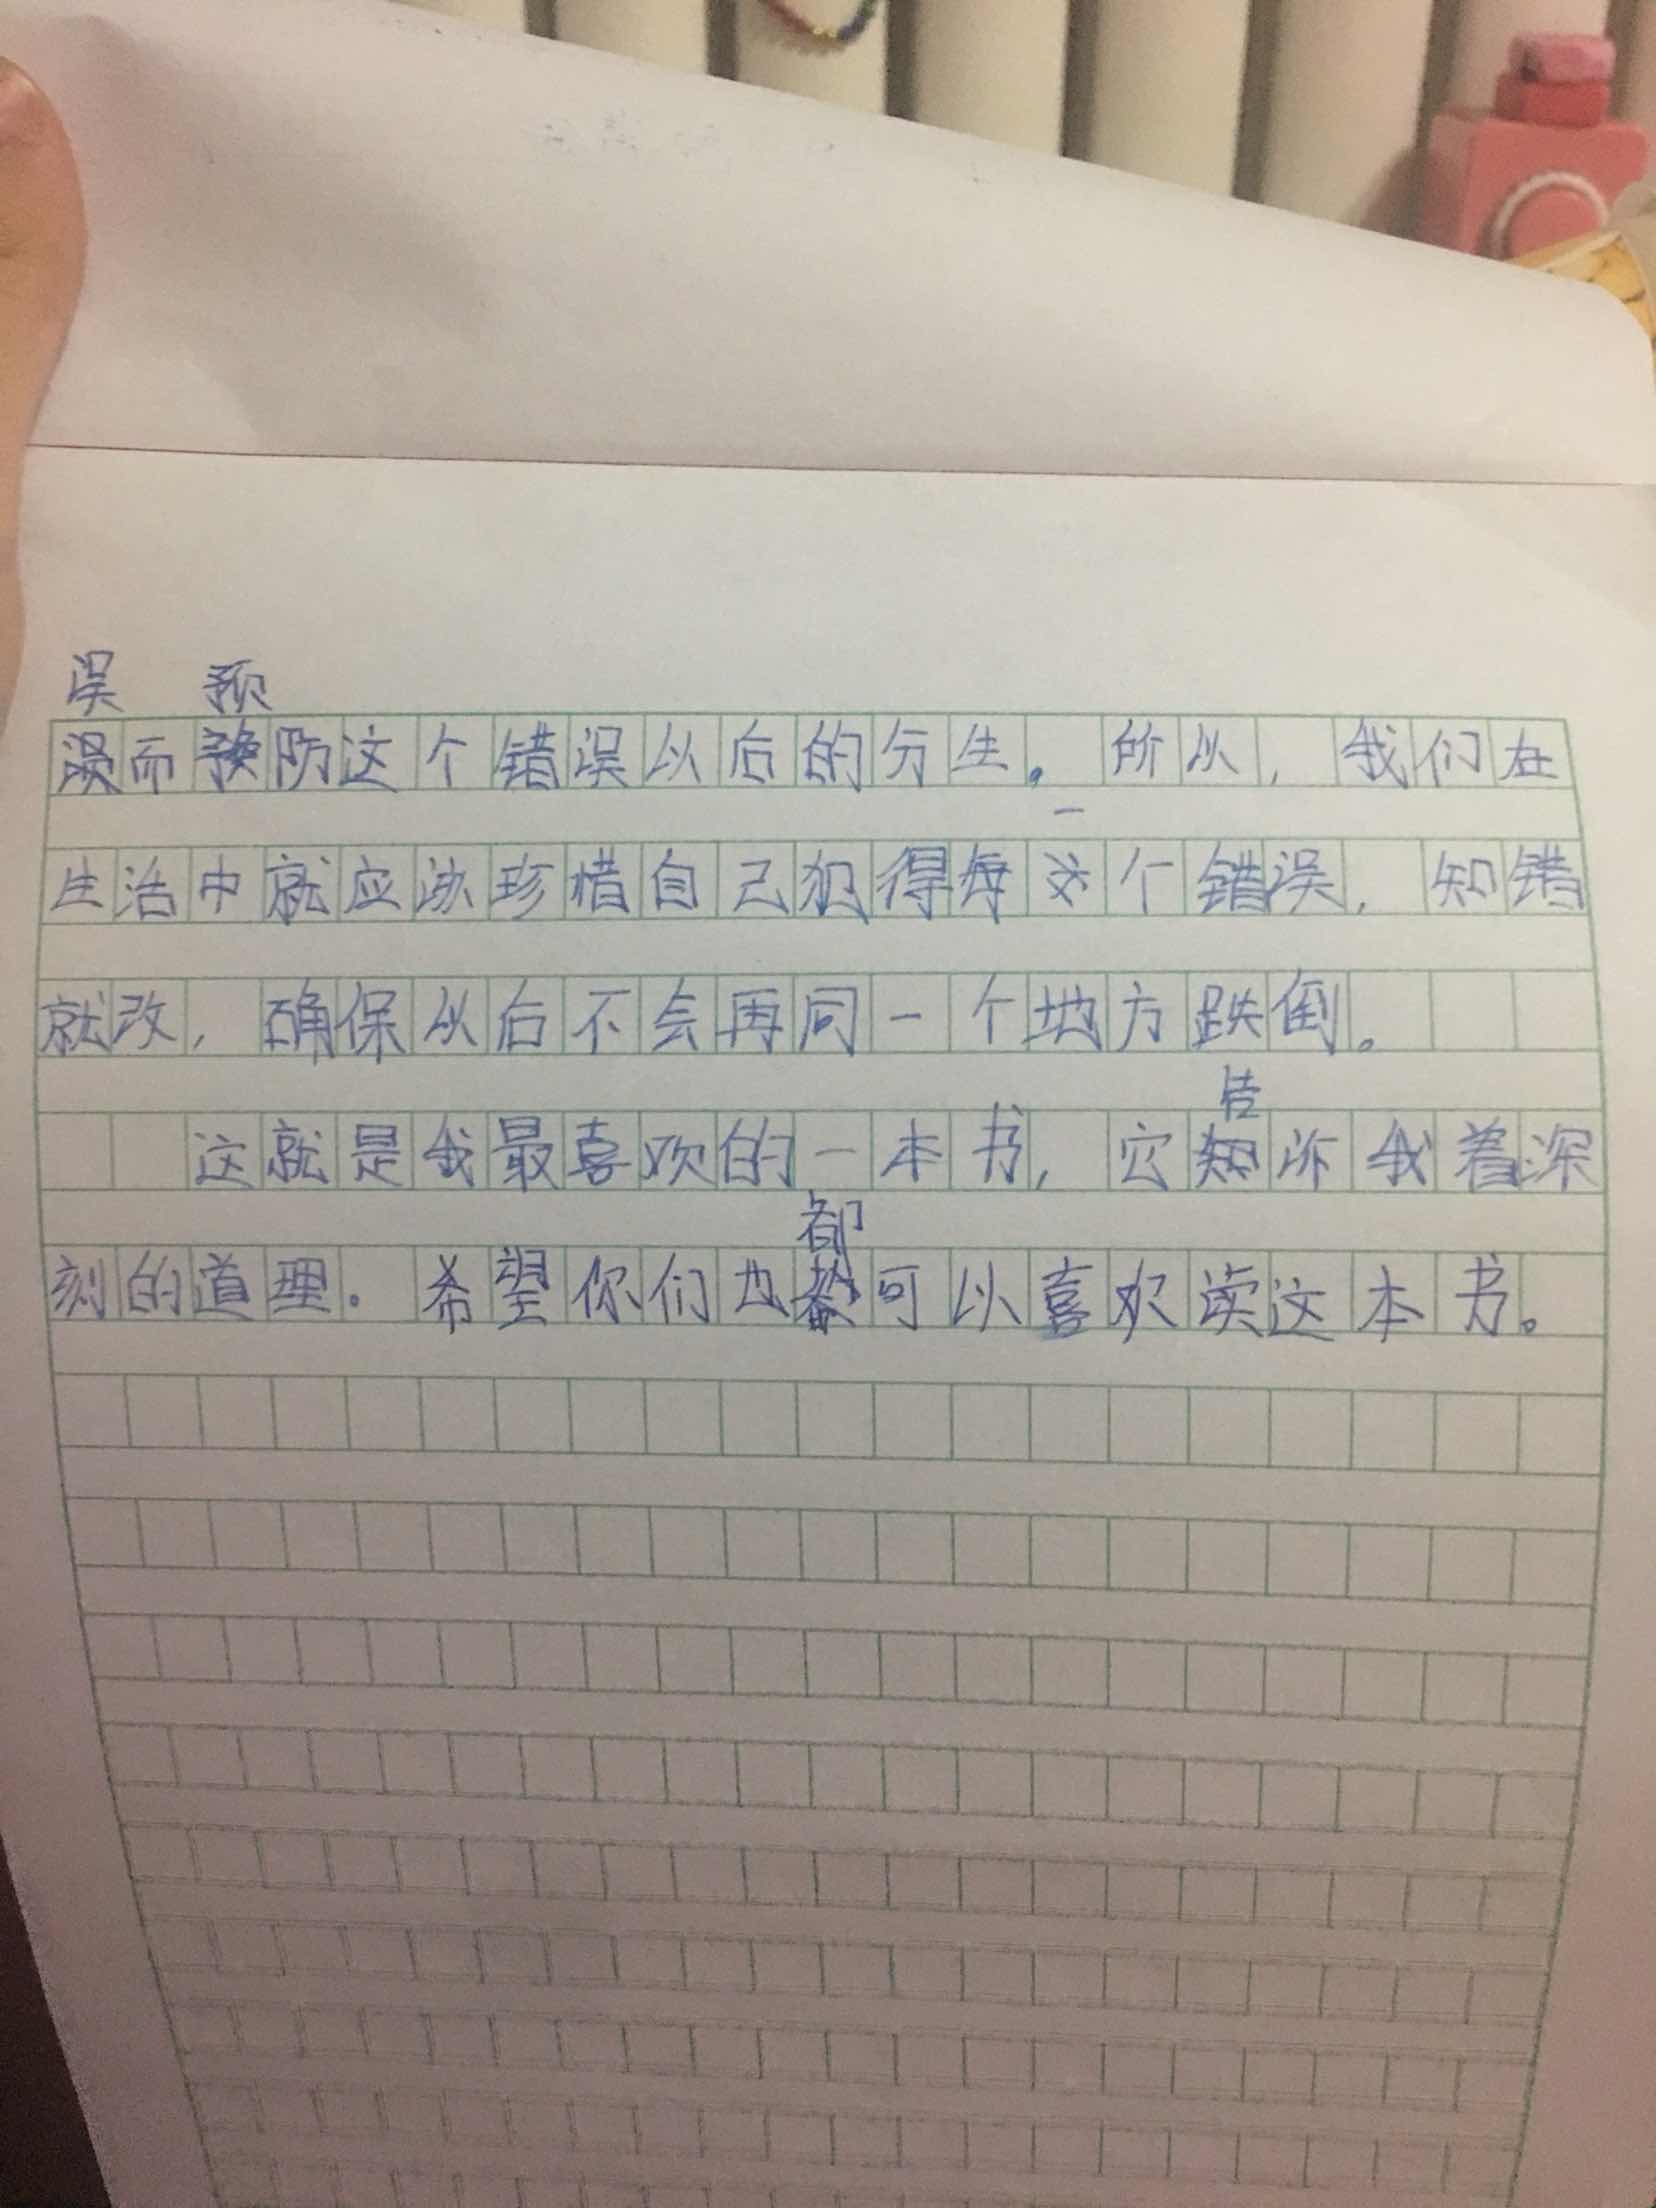 误 预
误而预防这个错误以后的分生。所以，我们在
一
生活中就应该珍惜自己犯得每这个错误，知错
就改，确保以后不会再同一个地方跌倒。
告
这就是我最喜欢的一本书，它知诉我着深
都
刻的道理。希望你们也都可以喜欢读这本书。